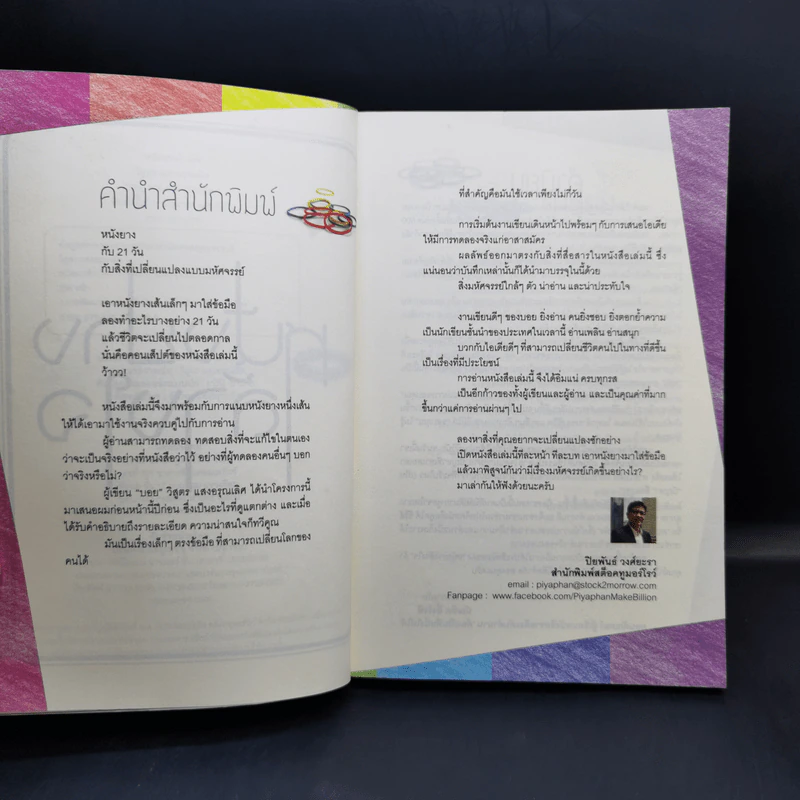 คำนำสำนักพิมพ์
หนังยาง
กับ 21 วัน
กับสิ่งที่เปลี่ยนแปลงแบบมหัศจรรย์
เอาหนังยางเส้นเล็กๆ มาใส่ข้อมือ
ลองทำอะไรบางอย่าง 21 วัน
แล้วชีวิตจะเปลี่ยนไปตลอดกาล
นั่นคือคอนเส็ปต์ของหนังสือเล่มนี้
ว้าวว!
หนังสือเล่มนี้จึงมาพร้อมกับการแนบหนังยางหนึ่งเส้น
ให้ได้เอามาใช้งานจริงควบคู่ไปกับการอ่าน
ผู้อ่านสามารถทดลอง ทดสอบสิ่งที่จะแก้ไขในตนเอง
ว่าจะเป็นจริงอย่างที่หนังสือว่าไว้ อย่างที่ผู้ทดลองคนอื่นๆ บอก
ว่าจริงหรือไม่?
ผู้เขียน "บอย" วิสูตร แสงอรุณเลิศ ได้นำโครงการนี้
มาเสนอผมก่อนหน้านี้ปีก่อน ซึ่งเป็นอะไรที่ดูแตกต่าง และเมื่อ
ได้รับคำอธิบายถึงรายละเอียด ความน่าสนใจก็ทวีคูณ
มันเป็นเรื่องเล็กๆ ตรงข้อมือ ที่สามารถเปลี่ยนโลกของ
คนได้
ที่สำคัญคือมันใช้เวลาเพียงไม่กี่วัน
การเริ่มต้นงานเขียนเดินหน้าไปพร้อมๆ กับการเสนอไอเดีย
ให้มีการทดลองจริงแก่อาสาสมัคร
ผลลัพธ์ออกมาตรงกับสิ่งที่สื่อสารในหนังสือเล่มนี้ ซึ่ง
แน่นอนว่าบันทึกเหล่านั้นก็ได้นำมาบรรจุในนี้ด้วย
สิ่งมหัศจรรย์ใกล้ๆ ตัว น่าอ่าน และน่าประทับใจ
งานเขียนดีๆ ของบอย ยิ่งอ่าน คนยิ่งชอบ ยิ่งตอกย้ำความ
เป็นนักเขียนชั้นนำของประเทศในเวลานี้ อ่านเพลิน อ่านสนุก
บวกกับไอเดียดีๆ ที่สามารถเปลี่ยนชีวิตคนไปในทางที่ดีขึ้น
เป็นเรื่องที่มีประโยชน์
การอ่านหนังสือเล่มนี้ จึงได้อิ่มแน่ ครบทุกรส
เป็นอีกก้าวของทั้งผู้เขียนและผู้อ่าน และเป็นคุณค่าที่มาก
ขึ้นกว่าแค่การอ่านผ่านๆ ไป
ลองหาสิ่งที่คุณอยากจะเปลี่ยนแปลงซักอย่าง
เปิดหนังสือเล่มนี้ทีละหน้า ทีละบท เอาหนังยางมาใส่ข้อมือ
แล้วมาพิสูจน์กันว่ามีเรื่องมหัศจรรย์เกิดขึ้นอย่างไร?
มาเล่ากันให้ฟังด้วยนะครับ
ปิยพันธ์ วงศ์ยะรา
สำนักพิมพ์สต็อคทูมอร์โรว์
email : piyaphan@stock2morrow.com
Fanpage : www.facebook.com/PiyaphanMakeBillion